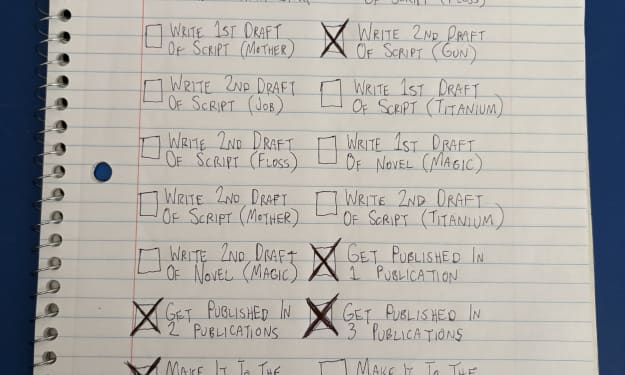 OF SCRIPT (FLOSS)
WRITE 1ST DRAFT
OF SCRIPT (MOTHER)
WRITE 2ND DRAFT
OF SCRIPT (GUN)
WRITE 2ND DRAFT
OF SCRIPT (JOB)
WRITE 1ST DRAFT
OF SCRIPT (TITANIUM)
WRITE 2ND DRAFT
OF SCRIPT (FLOSS)
WRITE 1ST DRAFT
OF NOVEL (MAGIC)
WRITE 2ND DRAFT
OF SCRIPT (MOTHER)
WRITE 2ND DRAFT
OF SCRIPT (TITANIUM)
WRITE 2ND DRAFT
OF NOVEL (MAGIC)
GET PUBLISHED IN
1 PUBLICATION
GET PUBLISHED IN
2 PUBLICATIONS
GET PUBLISHED IN
3 PUBLICATIONS
MAKE IT TO THE
MAKE IT TO THE